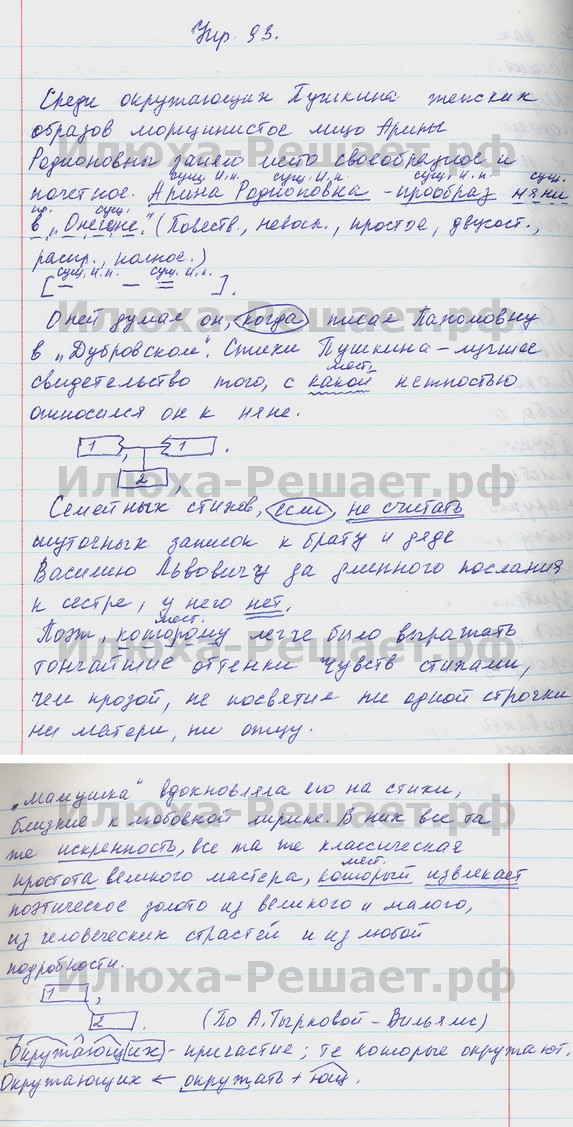 Упр. 93.
Среди окружающих Пушкина женских
образов морщинистое лицо Арины
Родионовны заняло место своеобразное и
сущ. И.п. сущ. И.п. сущ. И.п. сущ.
почетное. Арина Родионовна - прообраз няни
пр. сущ.
в „Онегене". (Повеств., невоск., простое, двусост.,
распр., полное.)
сущ. И.п. сущ. И.п.
[ - - = ].
О ней думал он, когда писал Пахомовну
в „Дубровском". Стихи Пушкина - лучшее
мест.
свидетельство того, с какой нежностью
относился он к няне.
1 , 1 .
2 ,
Илюха-Решает.рф
Семейных стихов, если не считать
шуточных записок к брату и дяде
Василию Львовичу да длинного послания
к сестре, у него нет.
мест.
Поэт, которому легче было выражать
тончайшие оттенки чувств стихами,
чем прозой, не посвятил ни одной строчки
ни матери, ни отцу.
„мамушка" вдохновляла его на стихи,
близкие к любовной лирике. В них все та
же искренность, все та же классическая
мест.
простота великого мастера, который извлекает
поэтическое золото из великого и малого,
из человеческих страстей и из любой
подробности.
1 ,
2 . (По А. Тырковой - Вильямс)
Окружающих - причастие; те которые окружают.
Окружающих ← окружать + ющ.
Илюха-Решает.рф
Илюха-Решает.рф
Илюха-Решает.рф
Илюха-Решает.рф
Илюха-Решает.рф
Илюха-Решает.рф